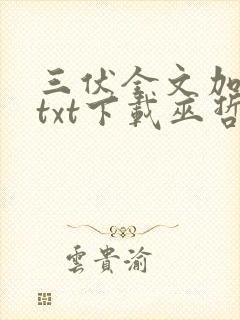 三伏全文加
txt下载巫哲
雲貴渝